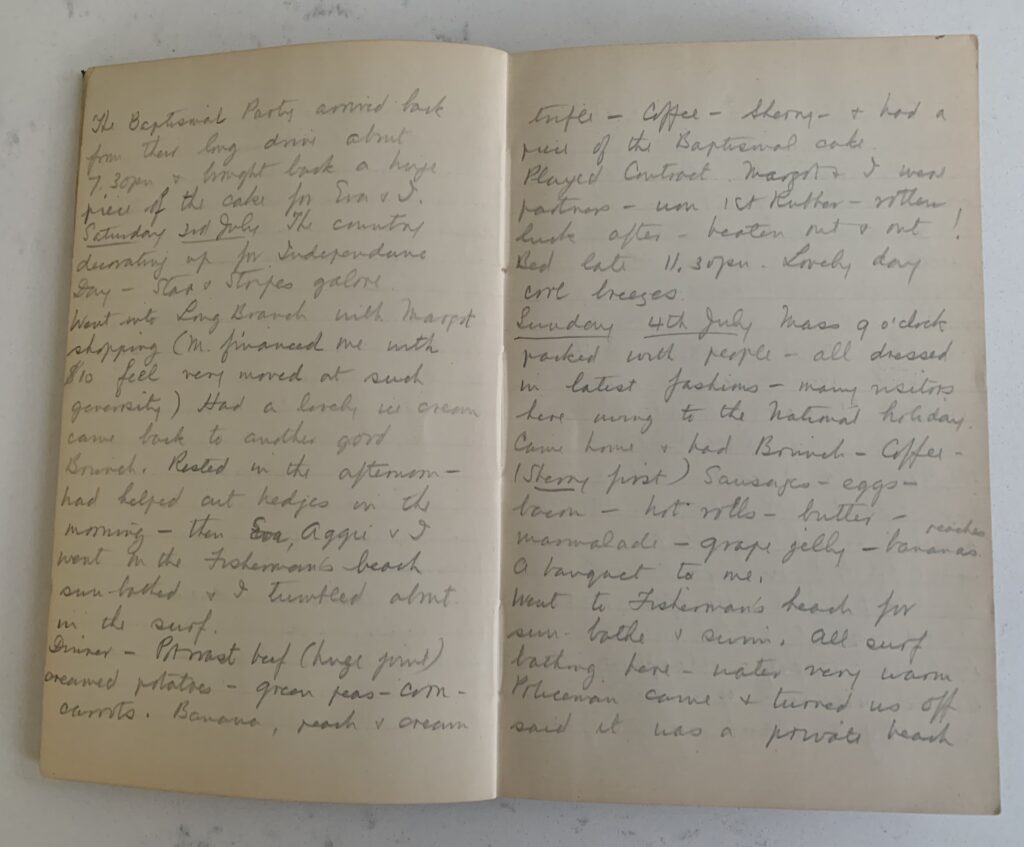 The Baptismal Party arrived back
from their long drive about
7.30pm & brought back a huge
piece of the cake for Eva & I.
Saturday 3rd July The country
decorating up for Independence
Day – Stars & Stripes galore.
Went into Long Branch with Margot
shopping (M. financed me with
$10 feel very moved at such
generosity) Had a lovely ice cream
came back to another good
Brunch. Rested in the afternoon –
had helped cut hedges in the
morning – then Eva, Aggie & I
went to the Fisherman's beach
sun-bathed & I tumbled about
in the surf.
Dinner – Pot roast beef (huge joint)
creamed potatoes – green peas – corn –
carrots. Banana, peach & cream
trifle – Coffee – Sherry – & had a
piece of the Baptismal cake.
Played Contract. Margot & I were
partners – won 1st Rubber – rotten
luck after – beaten out & out!
Bed late 11.30pm. Lovely day
cool breezes.
Sunday 4th July Mass 9 o'clock
packed with people – all dressed
in latest fashions – many visitors
here owing to the National holiday.
Came home & had Brunch – Coffee –
(Sherry first) Sausages – eggs –
bacon – hot rolls – butter –
marmalade – grape jelly – peaches bananas.
A banquet to me.
Went to Fisherman's beach for
sun-bathe & swim. All surf
bathing here – water very warm
Policeman came & turned us off
said it was a private beach